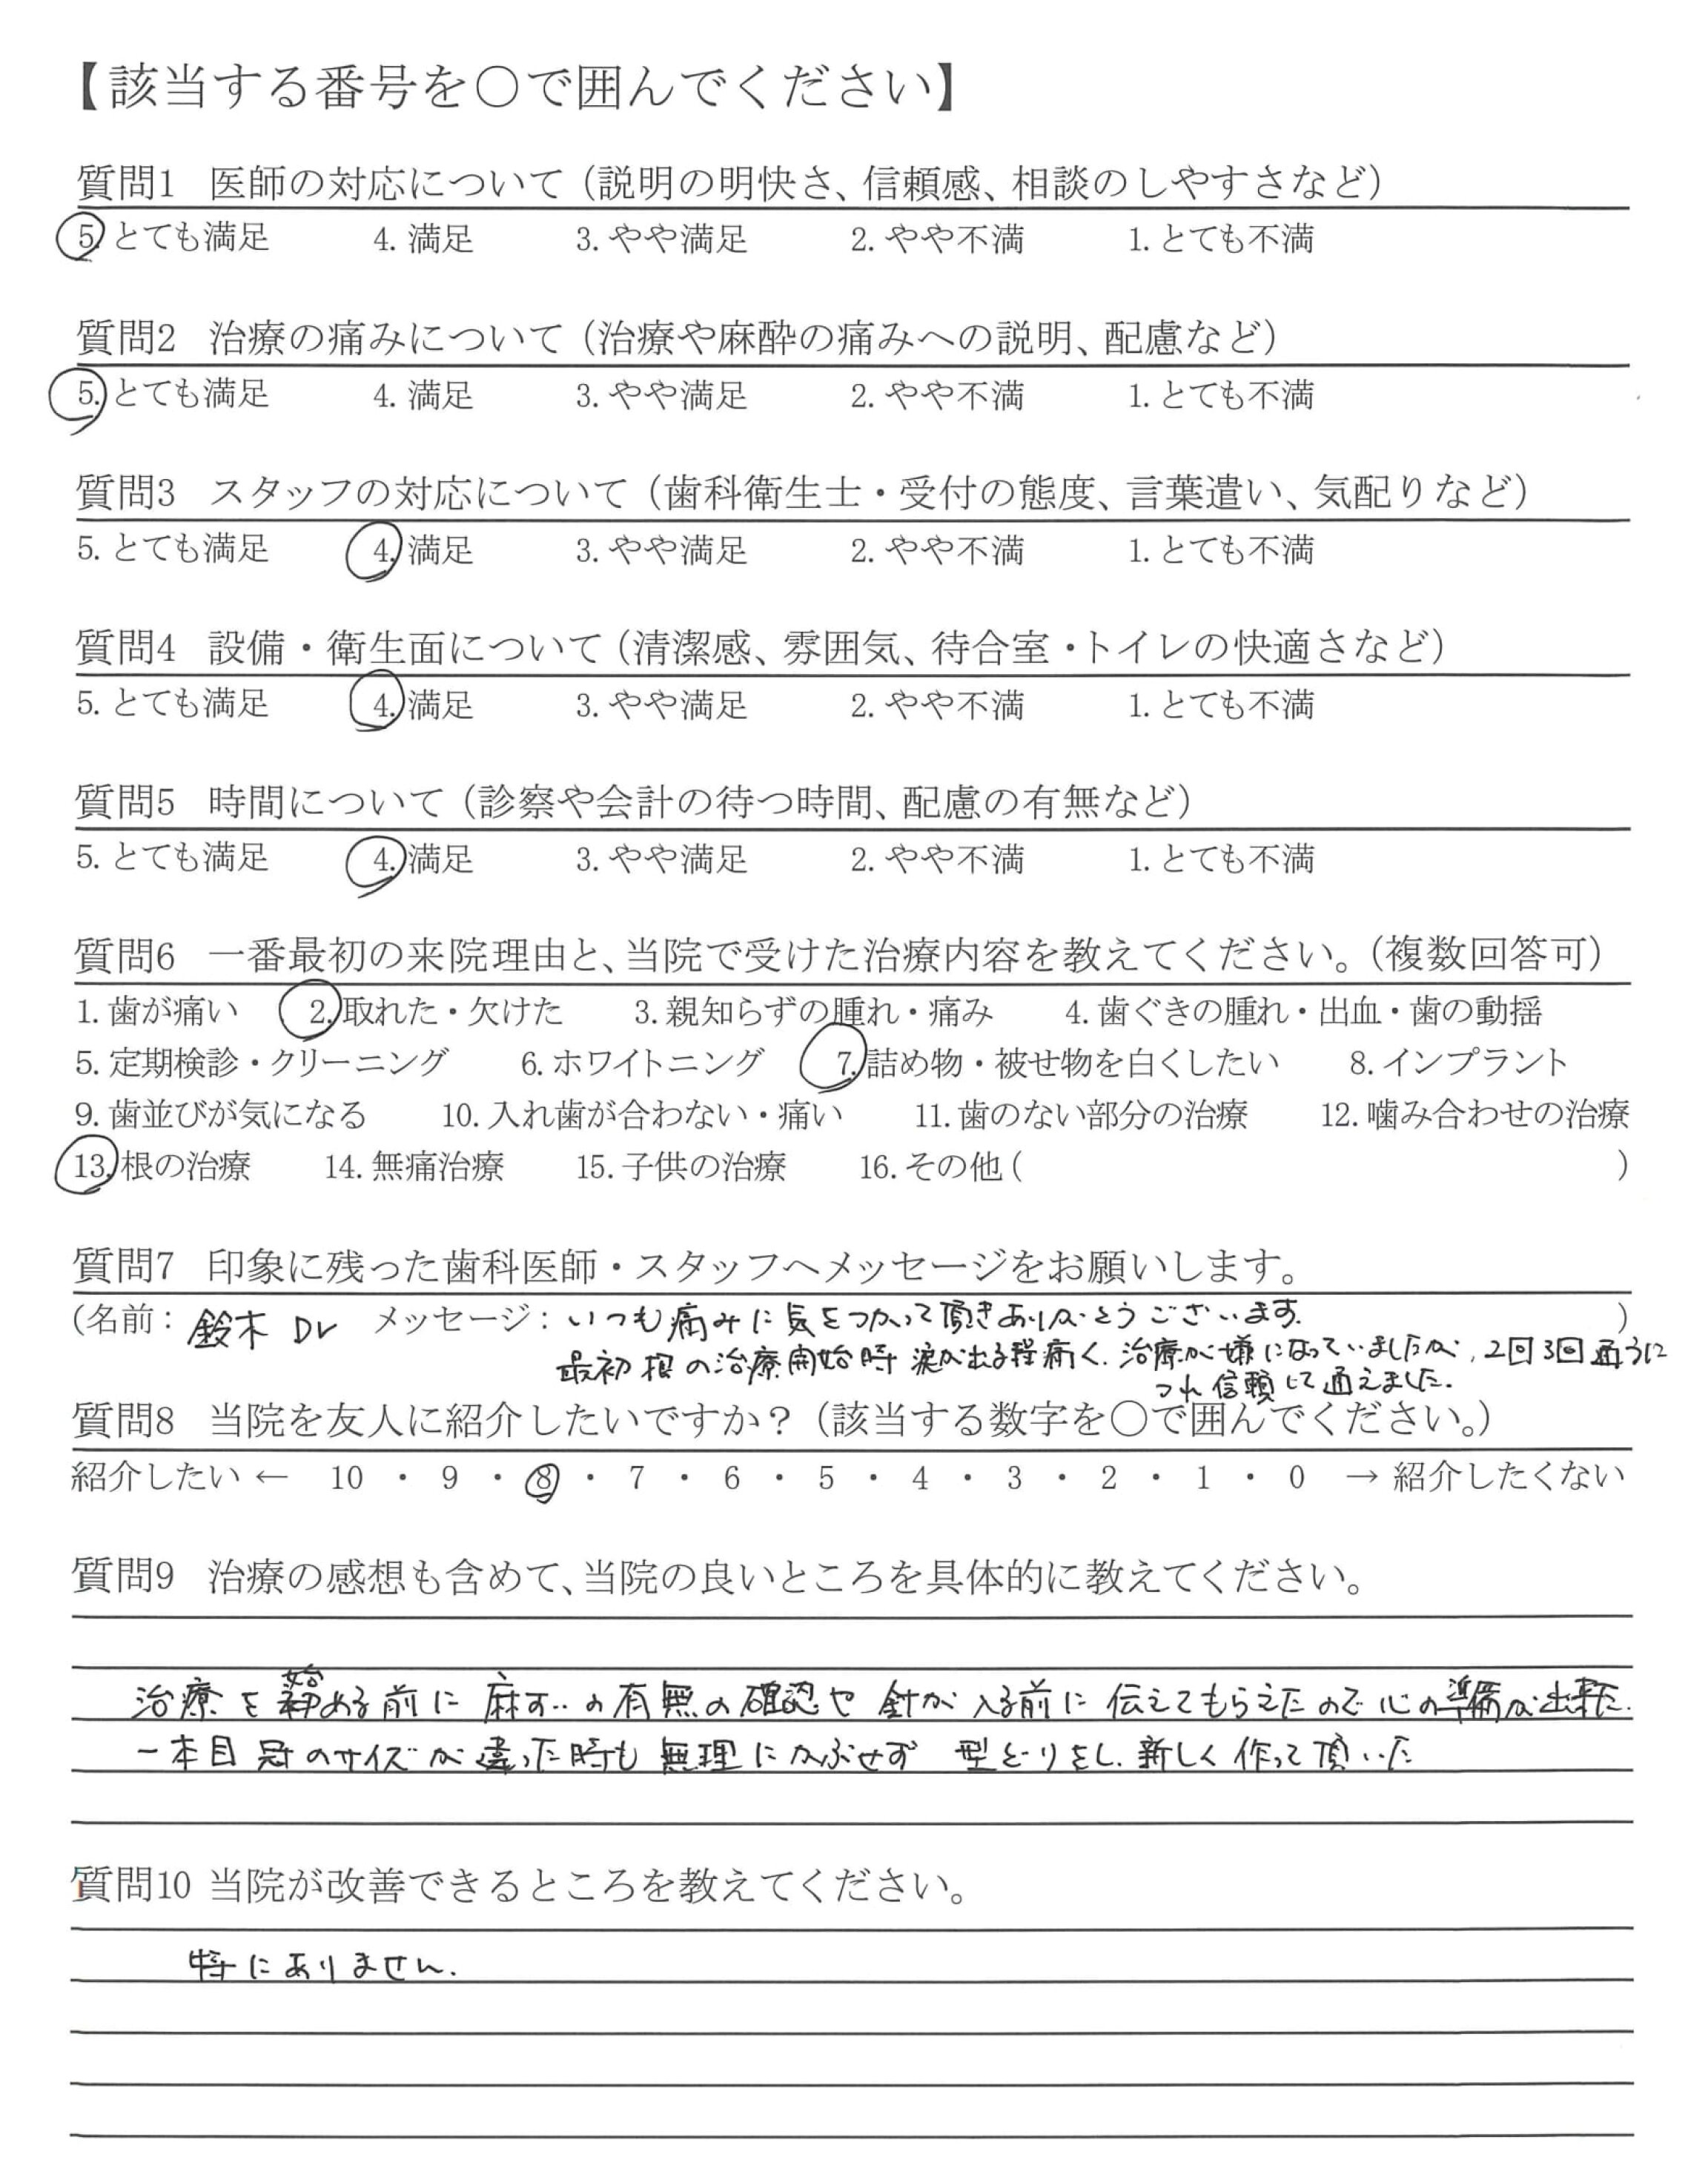 【該当する番号を〇で囲んでください】
質問1 医師の対応について（説明の明快さ、信頼感、相談のしやすさなど）
5. とても満足 4. 満足 3. やや満足 2. やや不満 1. とても不満
質問2 治療の痛みについて（治療や麻酔の痛みへの説明、配慮など）
5. とても満足 4. 満足 3. やや満足 2. やや不満 1. とても不満
質問3 スタッフの対応について（歯科衛生士・受付の態度、言葉遣い、気配りなど）
5. とても満足 4. 満足 3. やや満足 2. やや不満 1. とても不満
質問4 設備・衛生面について（清潔感、雰囲気、待合室・トイレの快適さなど）
5. とても満足 4. 満足 3. やや満足 2. やや不満 1. とても不満
質問5 時間について（診察や会計の待つ時間、配慮の有無など）
5. とても満足 4. 満足 3. やや満足 2. やや不満 1. とても不満
質問6 一番最初の来院理由と、当院で受けた治療内容を教えてください。（複数回答可）
1. 歯が痛い 2. 取れた・欠けた 3. 親知らずの腫れ・痛み 4. 歯ぐきの腫れ・出血・歯の動揺
5. 定期検診・クリーニング 6. ホワイトニング 7. 詰め物・被せ物を白くしたい 8. インプラント
9. 歯並びが気になる 10. 入れ歯が合わない・痛い 11. 歯のない部分の治療 12. 噛み合わせの治療
13. 根の治療 14. 無痛治療 15. 子供の治療 16. その他（ ）
質問7 印象に残った歯科医師・スタッフへメッセージをお願いします。
（名前：鈴木 Dr メッセージ：いつも痛みに気をつかって頂きありがとうございます. ）
最初 根の治療開始時 涙が出る程痛く. 治療が嫌になっていましたが, 2回3回通うに
つれ 信頼して通えました.
質問8 当院を友人に紹介したいですか？（該当する数字を〇で囲んでください。）
紹介したい ← 10 ・ 9 ・ 8 ・ 7 ・ 6 ・ 5 ・ 4 ・ 3 ・ 2 ・ 1 ・ 0 → 紹介したくない
質問9 治療の感想も含めて、当院の良いところを具体的に教えてください。
治療を始める前に 麻すいの有無の確認や 針が入る前に 伝えてもらえたので 心の準備が出来た.
一本目 冠のサイズが違った時も 無理にかぶせず 型どりをし. 新しく作って頂いた
質問10 当院が改善できるところを教えてください。
特にありません.